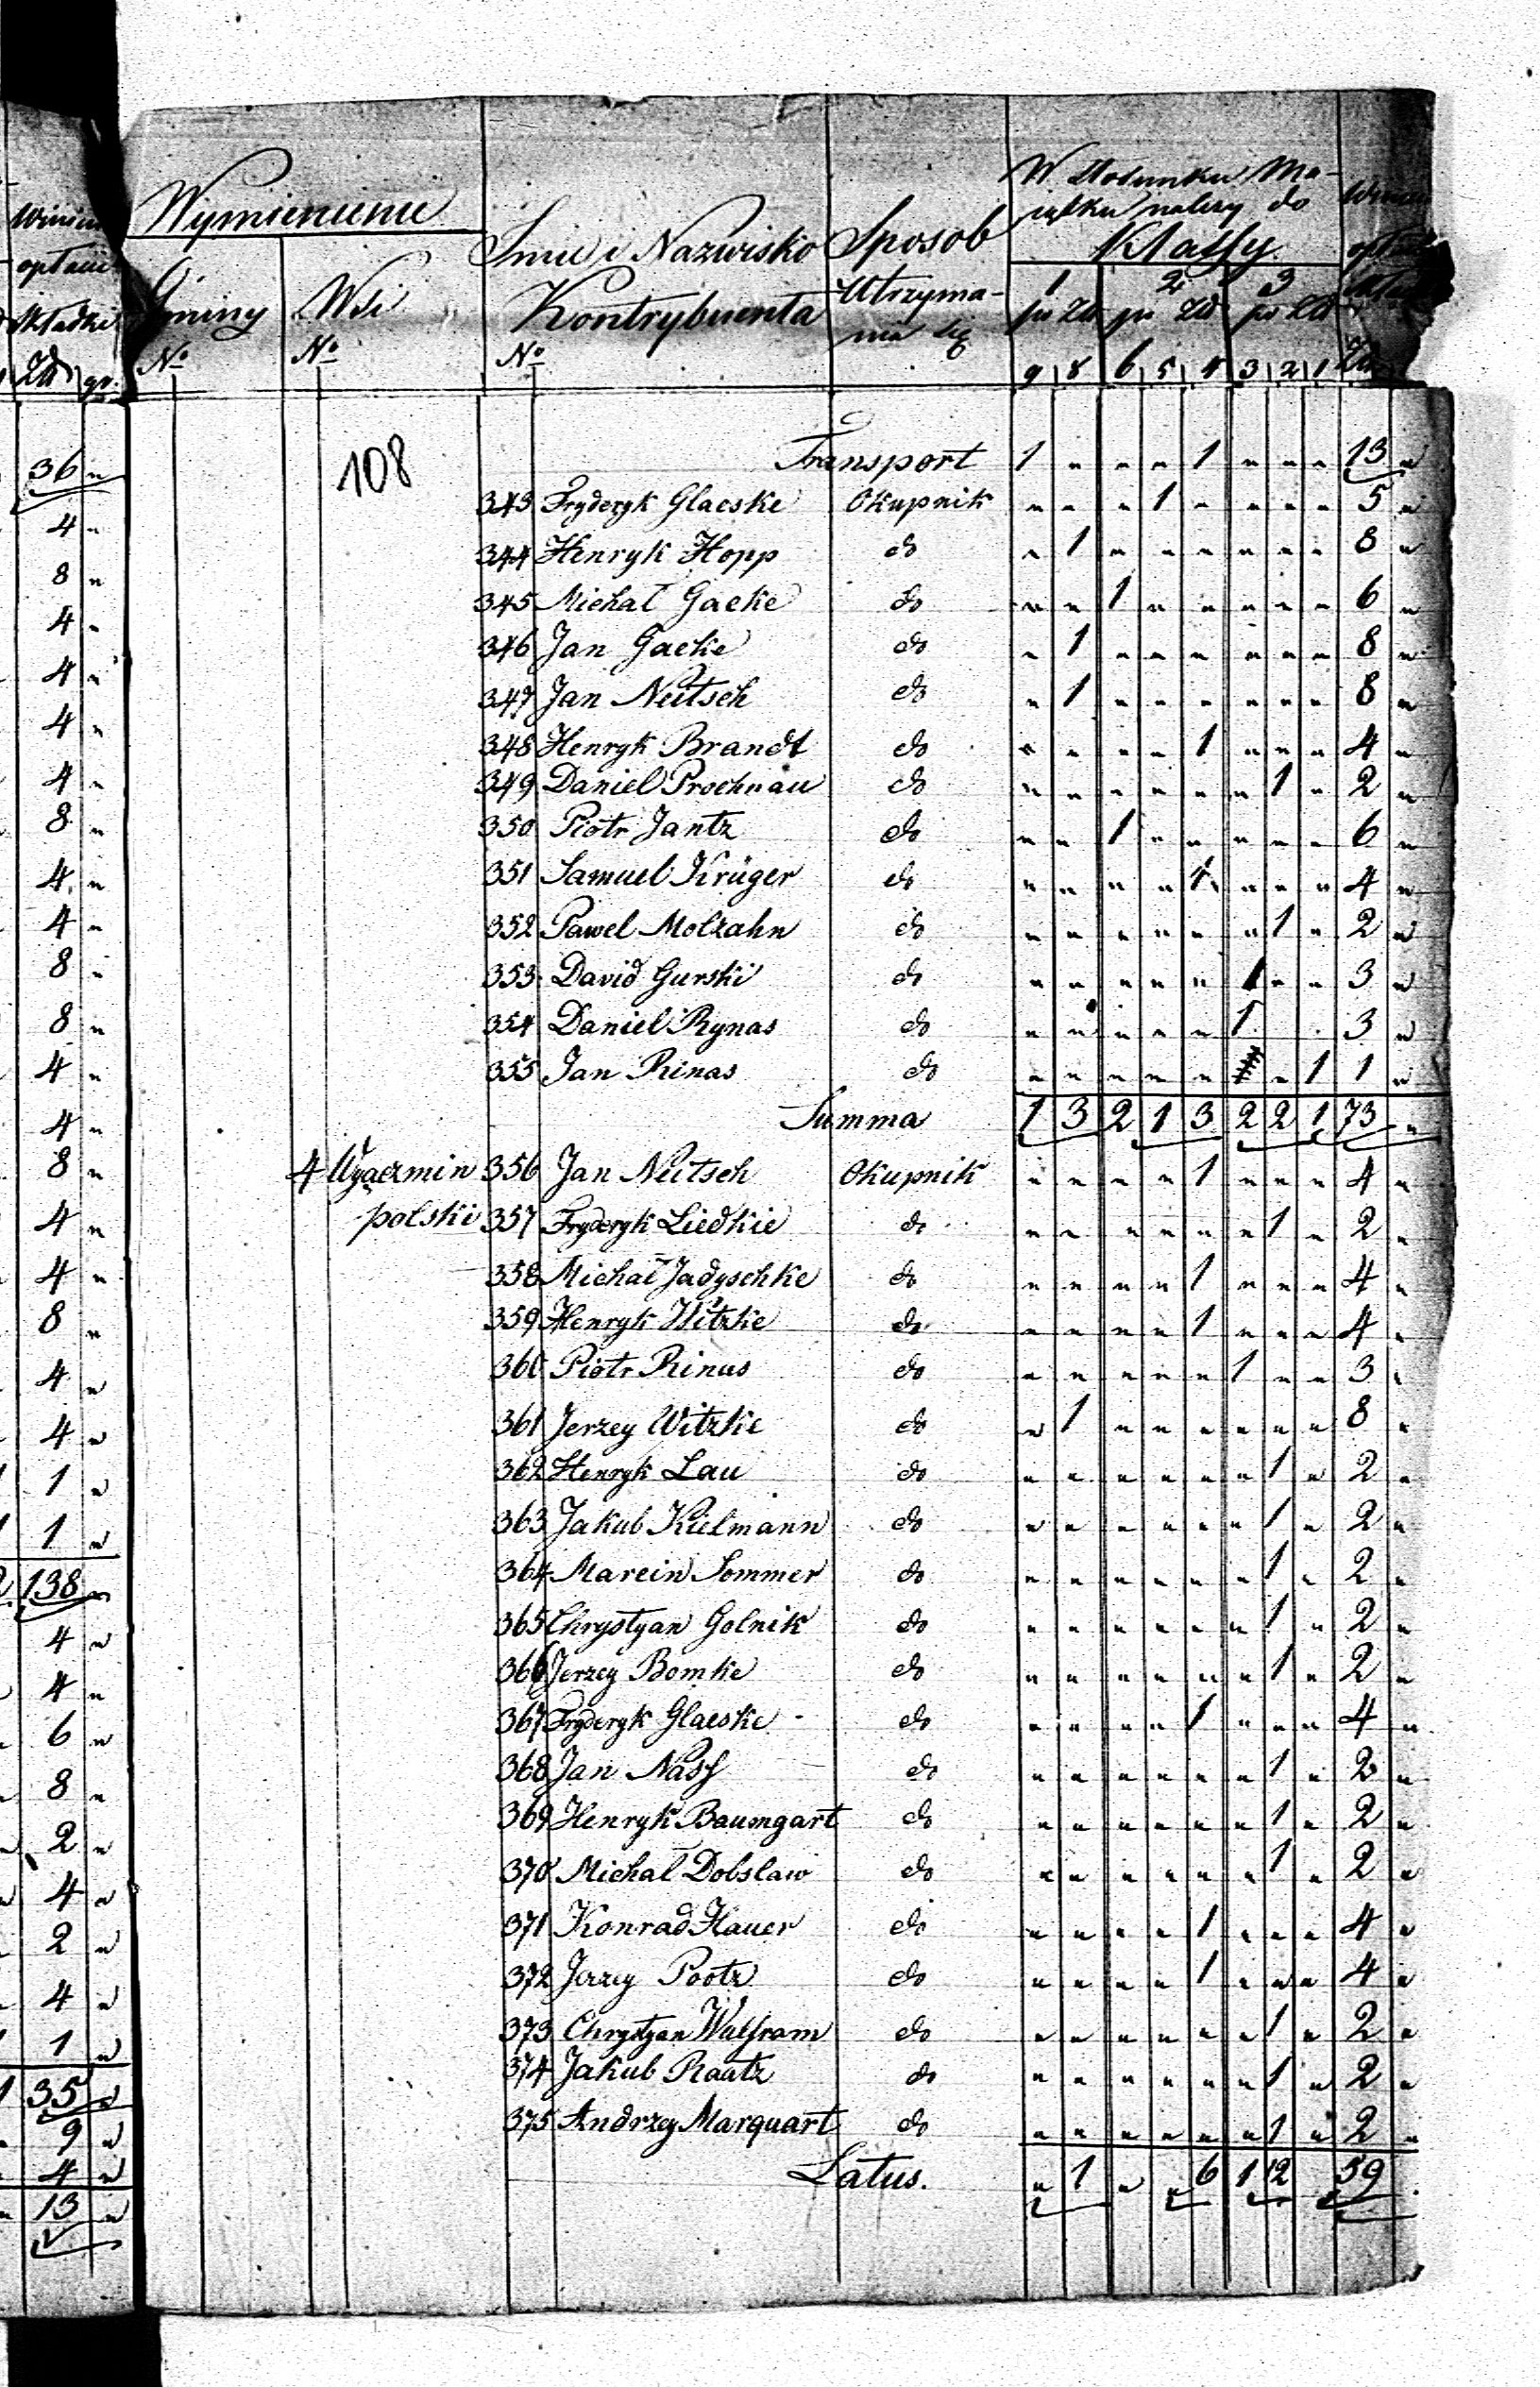 Wymienienie
Gminy
No
Wsi
No
Imie i Nazwisko
Kontrybuenta
No
Sposob
Utrzyma-
nia się
W Stosunku Ma-
iątku należy do
Klassy
1 2 3
po Zł po Zł po Zł
9 8 6 5 4 3 2 1
opłacić
Składki
Zł gr.
36 "
4 "
8 "
4 "
4 "
4 "
4 "
8 "
4 "
4 "
8 "
8 "
4 "
4 "
8 "
4 "
4 "
8 "
4 "
4 "
1 "
1 "
138 "
4 "
4 "
6 "
8 "
2 "
4 "
2 "
4 "
1 "
35 "
9 "
4 "
13 "
108
Transport 1 " " " 1 " " " 13 "
343 Fryderyk Glaeske Okupnik " " " 1 " " " " 5 "
344 Henryk Hopp do " 1 " " " " " " 8 "
345 Michał Gaeke do " " 1 " " " " " 6 "
346 Jan Gaeke do " 1 " " " " " " 8 "
347 Jan Neitsch do " 1 " " " " " " 8 "
348 Henryk Brandt do " " " " 1 " " " 4 "
349 Daniel Prochnau do " " " " " " 1 " 2 "
350 Piotr Jantz do " " 1 " " " " " 6 "
351 Samuel Krüger do " " " " 1 " " " 4 "
352 Pawel Molzahn do " " " " " " 1 " 2 "
353 David Gurski do " " " " " 1 " " 3 "
354 Daniel Rynas do " " " " " 1 . . 3 "
355 Jan Rinas do " " " " " " 1 1 "
Summa 1 3 2 1 3 2 2 1 73 "
4 Wyączmin 356 Jan Neitsch Okupnik " " " " 1 " " " 4 "
polski 357 Fryderyk Liedkie do " " " " " " 1 " 2 "
358 Michał Jadyschke do " " " " 1 " " " 4 "
359 Henryk Witzke do " " " " 1 " " " 4 "
360 Piotr Rinus do " " " " " 1 " " 3 "
361 Jerzey Witzke do " 1 " " " " " " 8 "
362 Henryk Lau do " " " " " " 1 " 2 "
363 Jakub Kielmann do " " " " " " 1 " 2 "
364 Marcin Sommer do " " " " " " 1 " 2 "
365 Chrystyan Golnik do " " " " " " 1 " 2 "
366 Jerzey Bomke do " " " " " " 1 " 2 "
367 Fryderyk Glaeske do " " " " 1 " " " 4 "
368 Jan Nass do " " " " " " 1 " 2 "
369 Henryk Baumgart do " " " " " " 1 " 2 "
370 Michał Dobslaw do " " " " " " 1 " 2 "
371 Konrad Hauer do " " " " 1 " " " 4 "
372 Jerzey Pootz do " " " " 1 " " " 4 "
373 Chrystyan Wulfram do " " " " " " 1 " 2 "
374 Jakub Raatz do " " " " " " 1 " 2 "
375 Andrzej Marquart do " " " " " " 1 " 2 "
Latus. " 1 " " 6 1 12 59